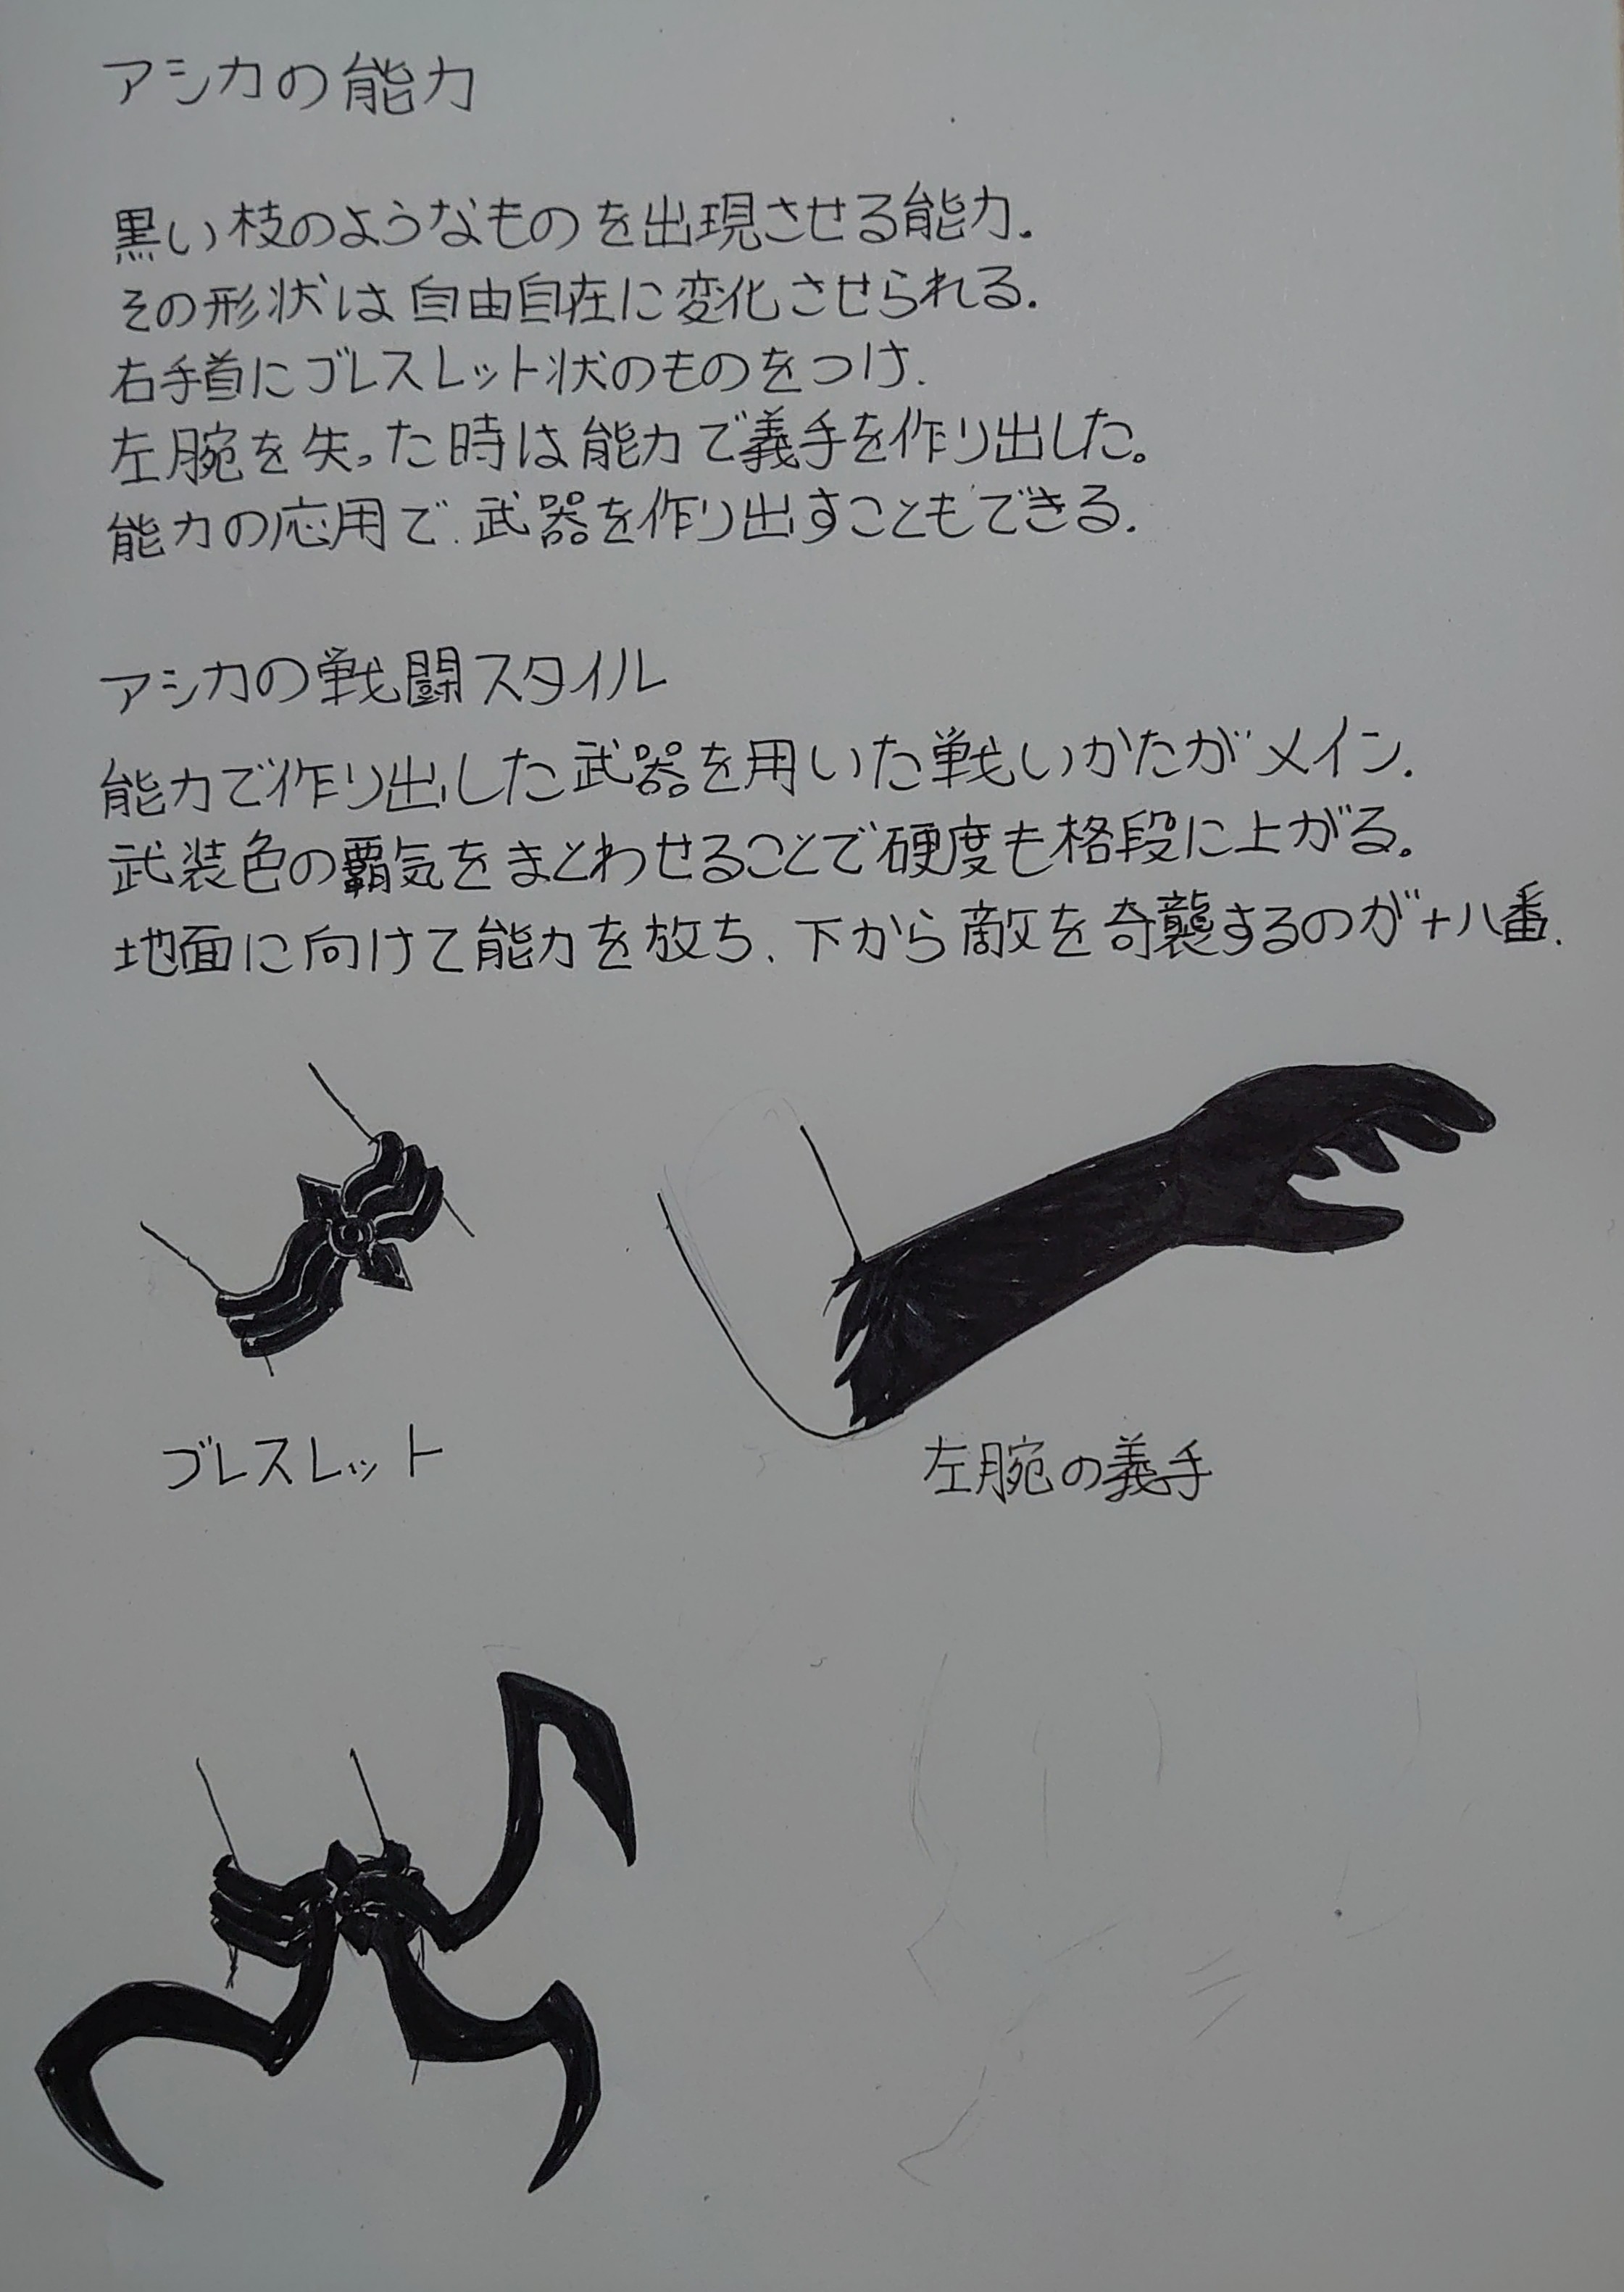 アシカの能力
黒い枝のようなものを出現させる能力.
その形状は自由自在に変化させられる.
右手首にブレスレット状のものをつけ.
左腕を失った時は能力で義手を作り出した。
能力の応用で.武器を作り出すこともできる.
アシカの戦闘スタイル
能力で作り出した武器を用いた戦いかたがメイン.
武装色の覇気をまとわせることで硬度も格段に上がる。
地面に向けて能力を放ち、下から敵を奇襲するのが十八番.
ブレスレット
左腕の義手